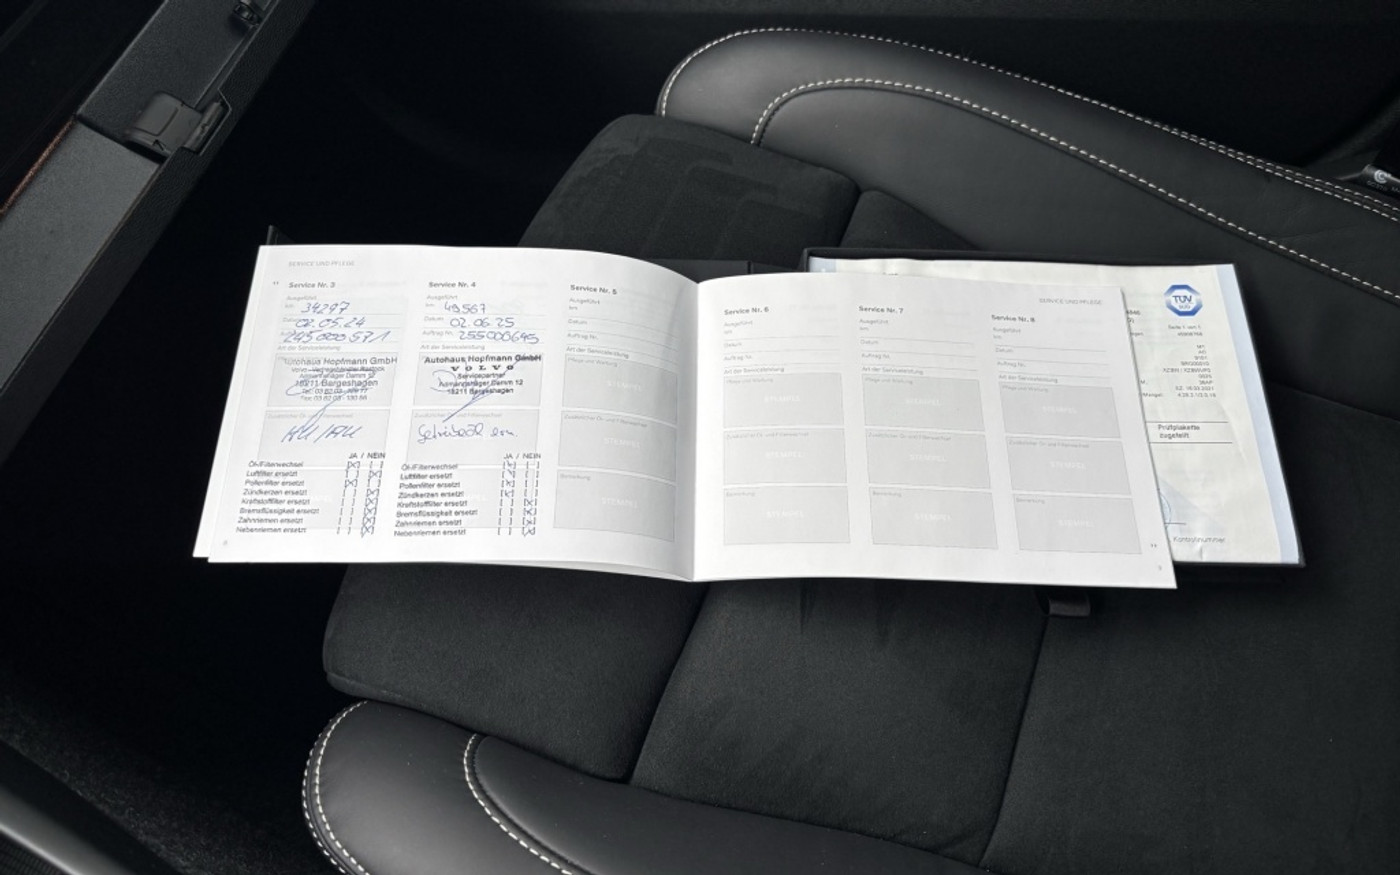 SERVICE UND PFLEGE
Service Nr. 3
Ausgeführt
km 34297
Datum 02.05.24
245000571
Art der Serviceleistung
Autohaus Hopfmann GmbH
Volvo
Admannshäger Damm 12
18211 Bargeshagen
Zusätzlicher Öl- und Filterwechsel
HU/AU
JA / NEIN
Öl-/Filterwechsel [X] [ ]
Luftfilter ersetzt [ ] [X]
Pollenfilter ersetzt [X] [ ]
Zündkerzen ersetzt [ ] [X]
Kraftstofffilter ersetzt [ ] [X]
Bremsflüssigkeit ersetzt [ ] [X]
Zahnriemen ersetzt [ ] [X]
Nebenriemen ersetzt [ ] [X]
Service Nr. 4
Ausgeführt
km 49567
Datum 02.06.25
Auftrag Nr. 255000695
Art der Serviceleistung
Autohaus Hopfmann GmbH
VOLVO
Servicepartner
Admannshäger Damm 12
18211 Bargeshagen
Zusätzlicher Öl- und Filterwechsel
JA / NEIN
Öl-/Filterwechsel [X] [ ]
Luftfilter ersetzt [X] [ ]
Pollenfilter ersetzt [X] [ ]
Zündkerzen ersetzt [X] [ ]
Kraftstofffilter ersetzt [ ] [X]
Bremsflüssigkeit ersetzt [ ] [X]
Zahnriemen ersetzt [ ] [X]
Nebenriemen ersetzt [ ] [X]
Service Nr. 5
Ausgeführt
km
Datum
Auftrag Nr.
Art der Serviceleistung
Pflege und Wartung
STEMPEL
Zusätzlicher Öl- und Filterwechsel
STEMPEL
Bemerkung
STEMPEL
Service Nr. 6
Ausgeführt
km
Datum
Auftrag Nr.
Art der Serviceleistung
Pflege und Wartung
STEMPEL
Zusätzlicher Öl- und Filterwechsel
STEMPEL
Bemerkung
STEMPEL
SERVICE UND PFLEGE
Service Nr. 7
Ausgeführt
km
Datum
Auftrag Nr.
Art der Serviceleistung
Pflege und Wartung
STEMPEL
Zusätzlicher Öl- und Filterwechsel
STEMPEL
Bemerkung
STEMPEL
Service Nr. 8
Ausgeführt
km
Datum
Auftrag Nr.
Art der Serviceleistung
Pflege und Wartung
STEMPEL
Zusätzlicher Öl- und Filterwechsel
STEMPEL
Bemerkung
STEMPEL
TÜV
Seite 1 von 1
Prüfplakette
zugeteilt
Kontrollnummer